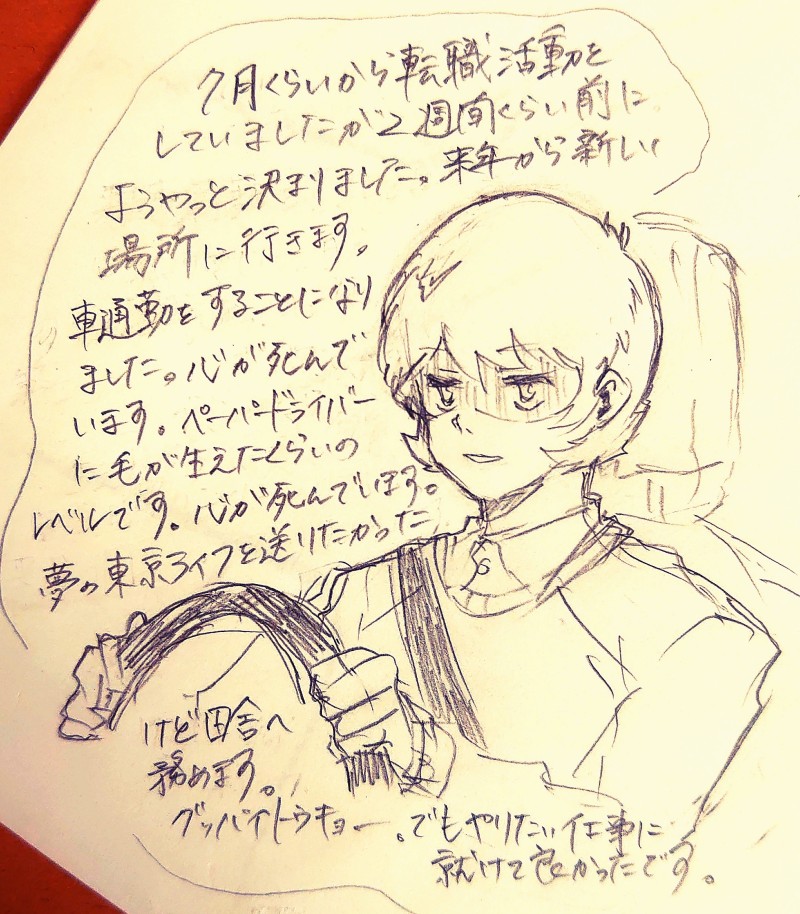 7月くらいから転職活動を
していましたが2週間くらい前に
ようやっと決まりました。来年から新しい
場所に行きます。
車通勤をすることになり
ました。心が死んで
います。ペーパードライバー
に毛が生えたくらいの
レベルです。心が死んでいます。
夢の東京ライフを送りたかった
けど田舎へ
務めます。
グッバイトウキョー。でもやりたい仕事に
就けて良かったです。